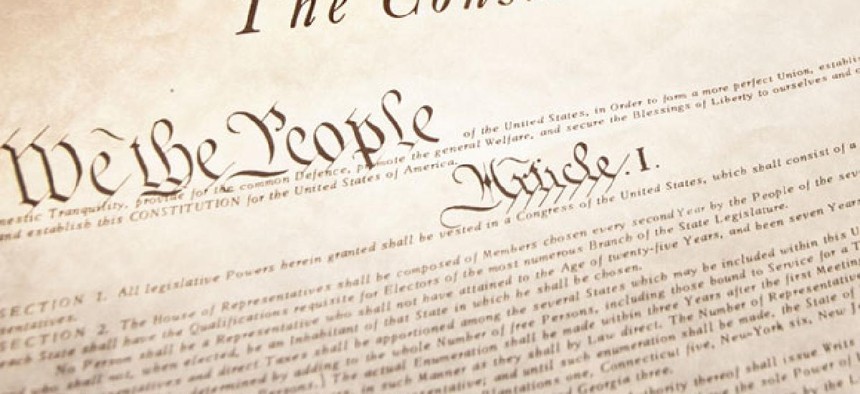 The Cons
We the People of the United States, in Order to form a more perfect Union, establi
mestic Tranquility, provide for the common Defence, promote the general Welfare, and secure the Blessings of Liberty to ourselves and
and establish this CONSTITUTION for the United States of America.
Article. I.
SECTION 1. All legislative Powers herein granted shall be vested in a Congress of the United States, which shall consist of a
sentatives.
SECTION 2. The House of Representatives shall be composed of Members chosen every second Year by the People of the sev
each State shall have the Qualifications requisite for Electors of the most numerous Branch of the State Legislature.
No Person shall be a Representative who shall not have attained to the Age of twenty-five Years, and been seven Years
who shall not, when elected, be an Inhabitant of that State in which he shall be chosen.
tatives and direct Taxes shall be apportioned among the several States which may be included within this
determined by adding to the whole Number of free Persons, including those bound to Service for a
Persons.] The actual Enumeration shall be made within three Years after the first Meeting
in such Manner as they shall by Law direct. The Number of Representatives
Representative; and until such enumeration shall be made, the State of
Plantations one, Connecticut five, New-York six, New
Georgia three.
thereof shall issue Writs
the sole Power of